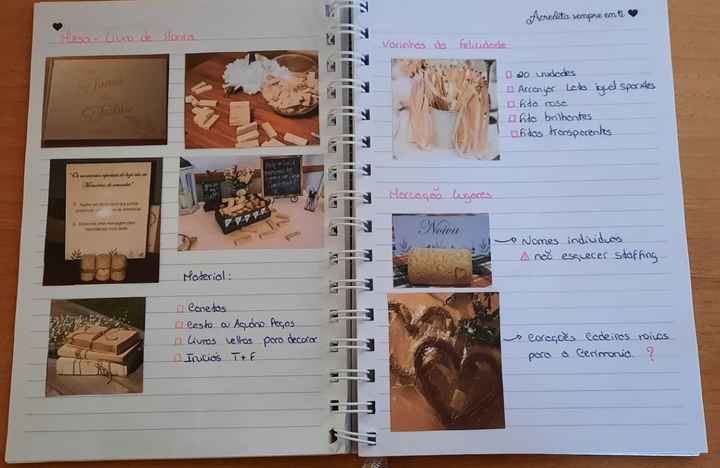 Mesa - Livro de Honra
"Os momentos especiais de hoje são as
Memórias de amanhã!"
Material:
Canetas
Cesto ou Aquário Peças
Livros velhos para decorar
Iniciais T+F
Acredita sempre em ti
Varinhas da felicidade
20 unidades
Arranjar Lata igual sparkles
fita rosa
fita brilhantes
fitas transparentes
Marcação lugares
Noiva
Nomes individuos
não esquecer staffing
Corações Cadeiras noivos
para a Cerimonia ?